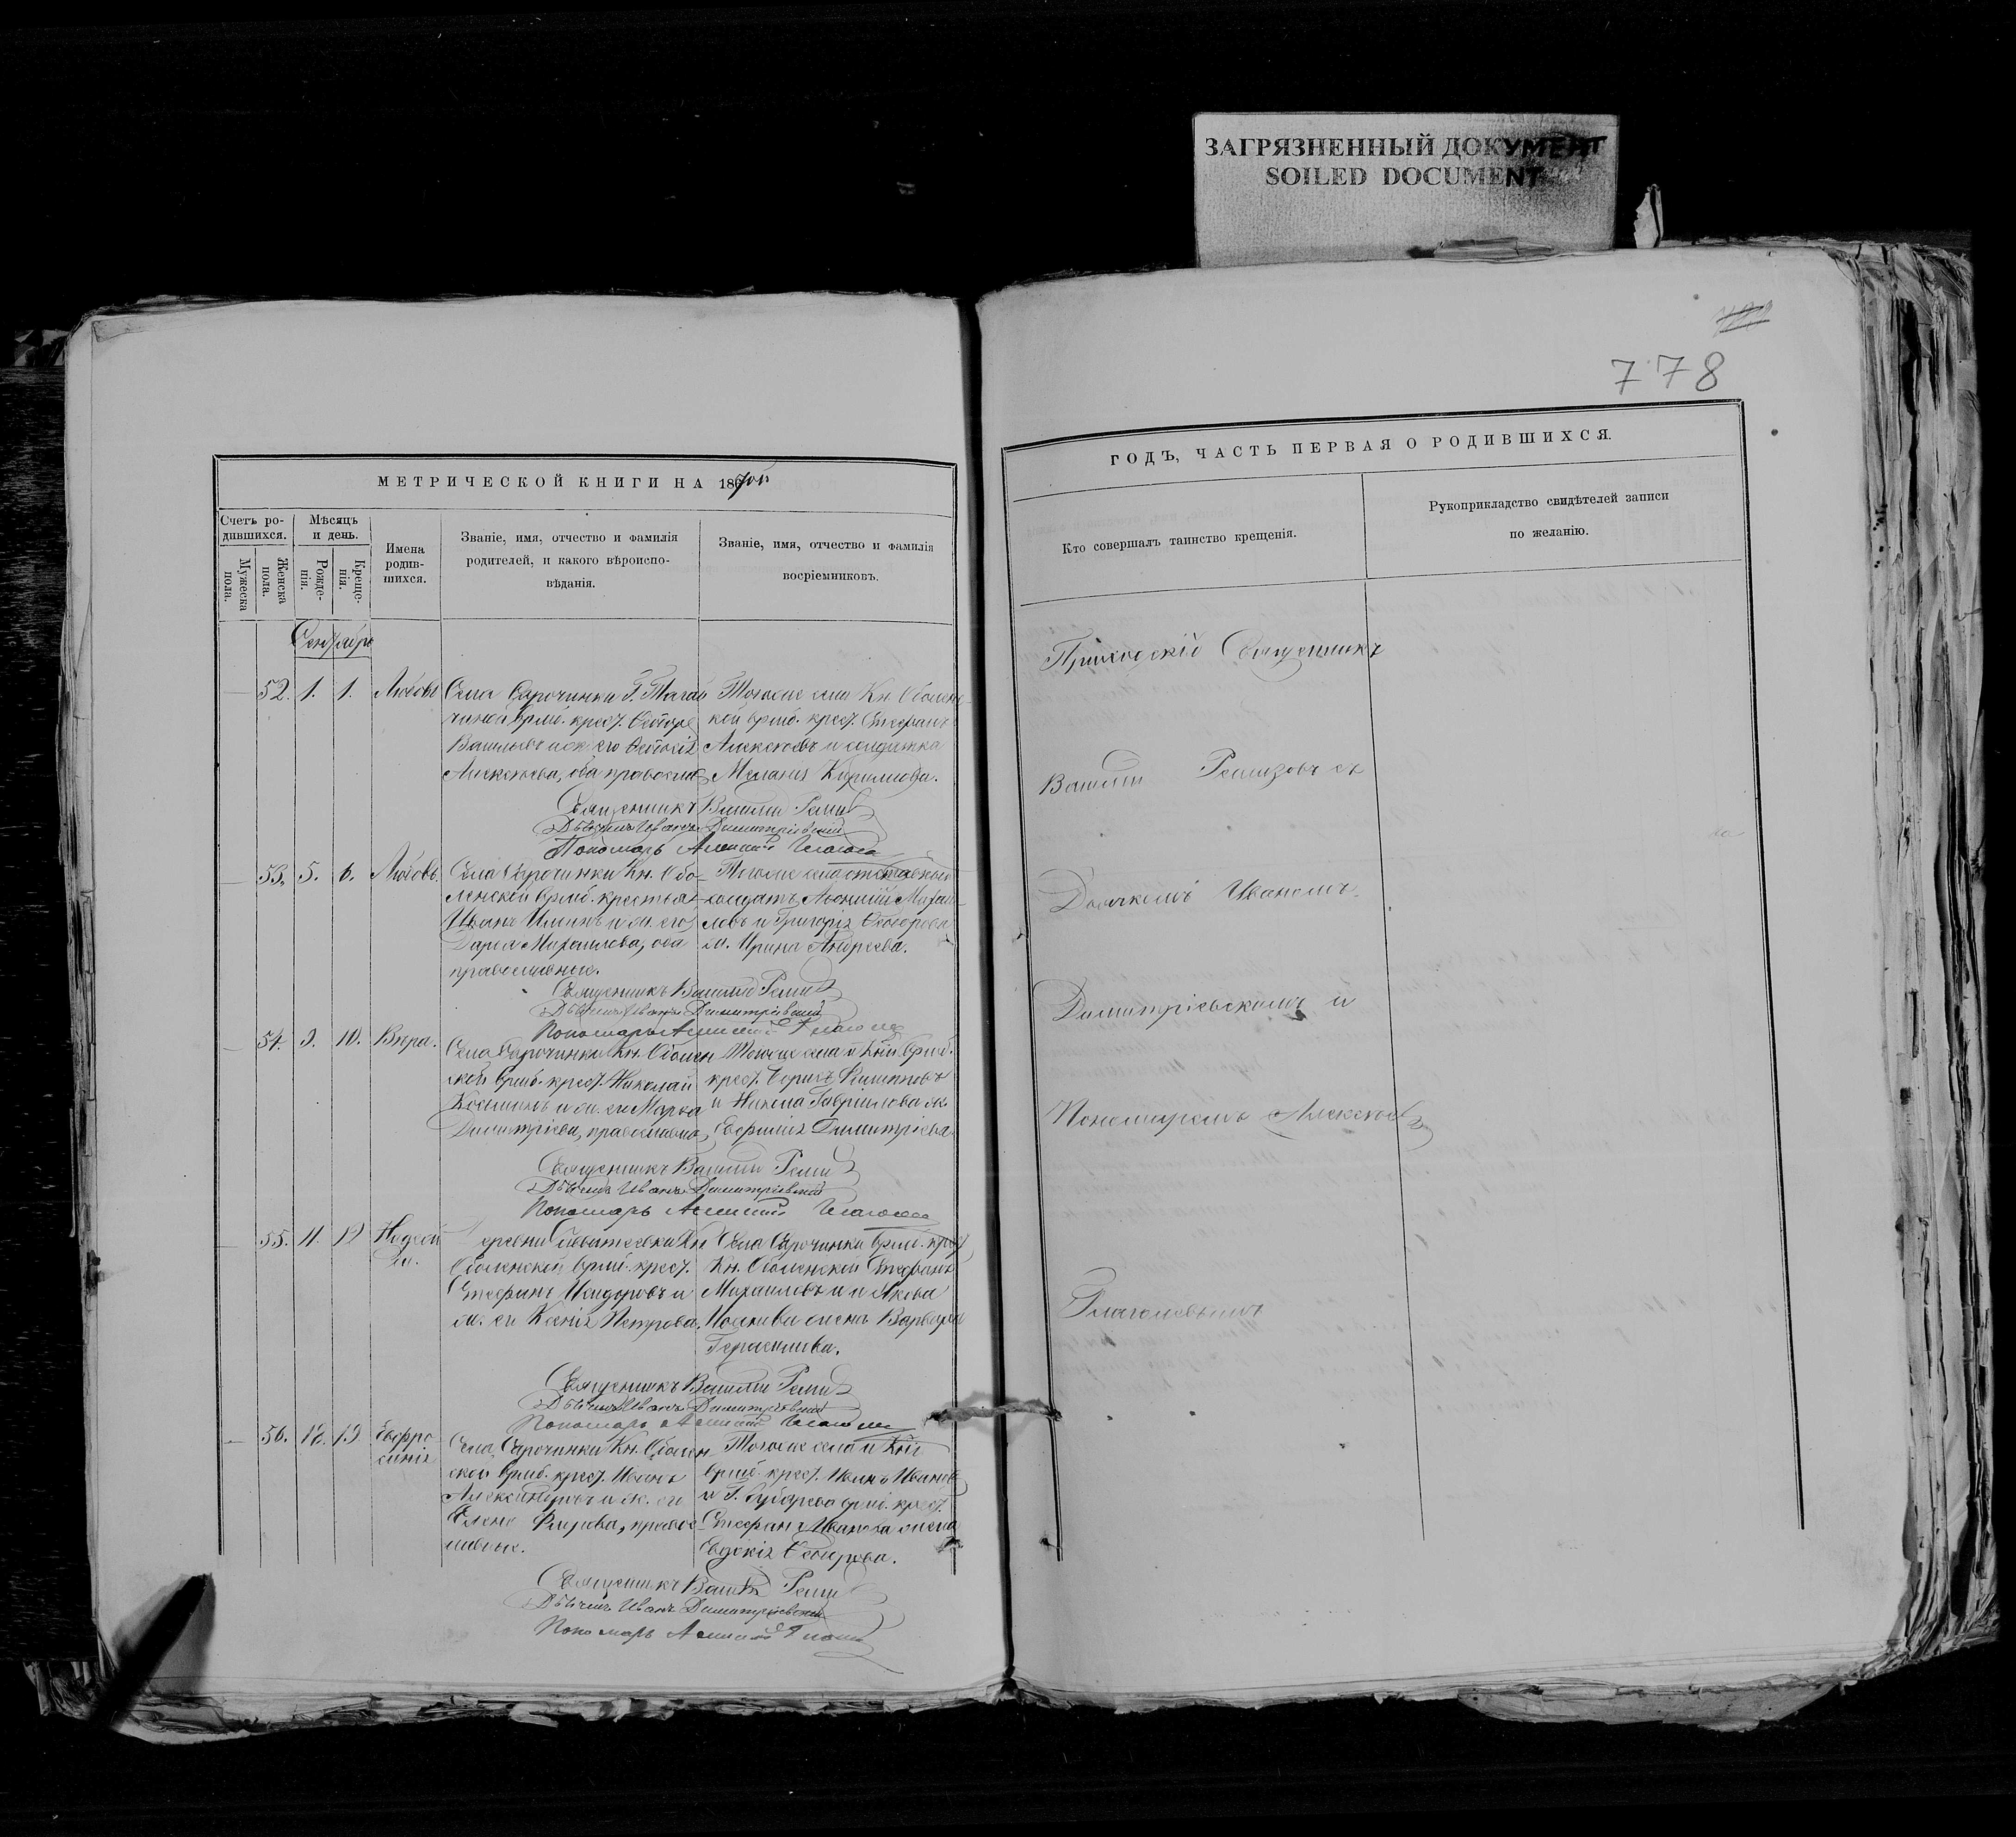 ЗАГРЯЗНЕННЫЙ ДОКУМЕНТ
SOILED DOCUMENT
778
МЕТРИЧЕСКОЙ КНИГИ НА 1870й
Счетъ ро-
дившихся.
Мѣсяцъ
и день.
Мужеска
пола.
Женска
пола.
Рожде-
нія.
Креще-
нія.
Имена
родив-
шихся.
Званіе, имя, отчество и фамилія
родителей, и какого вѣроиспо-
вѣданія.
Званіе, имя, отчество и фамилія
воспріемниковъ.
Сентябрь
52. 1. 1. Любовь
Села Сарочинки Г.
врмб. крест. Ѳеодоръ
Васильевъ и ж. его
Алексѣева, оба православ
Тогоже села Кн. Оболенс-
кой врмб. крест. Стефанъ
Алексѣевъ и солдатка
Меланія Кирилова.
Священникъ Василій Реми
Дьячекъ Иванъ Димитріевскій
Пономарь Алексѣй Глаголе
53. 5. 6. Любовь.
Села Сарочинки Кн. Обо-
ленской врмб. крестья
Иванъ Ильинъ и ж. его
Дарья Михаилова, оба
православные.
Тогоже села отставный
солдатъ Михаи-
ловъ и Григорія Ѳеодорова
ж. Ирина Андреева.
Священникъ Василій Реми
Дьячекъ Иванъ Димитріевскій
Пономарь Алексѣй Глаголе
54. 9. 10. Вѣра.
Села Сарочинки Кн. Оболен
ской врмб. крест. Николай
Козминъ и ж. его Марѳа
Димитріева, православно
Тогоже села и Кнг. врмб.
крест. Борисъ Филиповъ
и Никиты Гавриилова ж.
Евфимія Димитріева
Священникъ Василій Реми
Дьячекъ Иванъ Димитріевскій
Пономарь Алексѣй Глаголе
55. 11. 12 Надеж
да.
Деревни Кн
Оболенской врмб. крест.
Стефанъ Исидоровъ и
ж. его Ксенія Петрова.
Села Сарочинки врмб. крест
Кн. Оболенской Стефанъ
Михаиловъ и Якова
Іосифова жена Варвара
Герасимова.
Священникъ Василій Реми
Дьячекъ Иванъ Димитріевскій
Пономарь Алексѣй Глаголе
56. 12. 13 Евфро
синія
Села Сарочинки Кн. Оболен
ской врмб. крест. Иванъ
Александровъ и ж. его
Елена Фирсова, правос-
лавные.
Тогоже села и Кнг
врмб. крест. Иванъ Ивановъ
и Г. врмб. крест.
Стефана Иванова жена
Евдокія Ѳеодорова.
Священникъ Василій Реми
Дьячекъ Иванъ Димитріевскій
Пономарь Алексѣй Глаголе
ГОДЪ, ЧАСТЬ ПЕРВАЯ О РОДИВШИХСЯ.
Кто совершалъ таинство крещенія.
Рукоприкладство свидѣтелей записи
по желанію.
Приходскій Священникъ
Василій Ремизовъ съ
Дьячкомъ Иваномъ
Димитріевскимъ и
Пономаремъ Алексѣемъ
Глаголевымъ